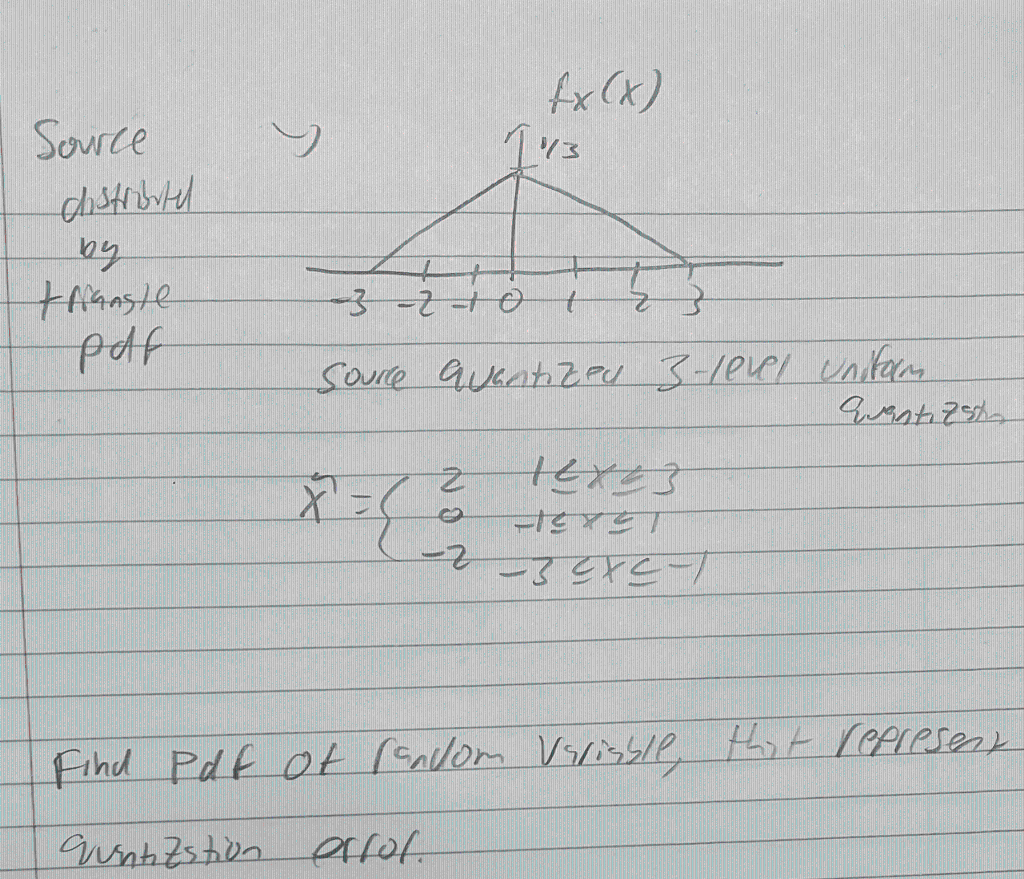 fx(x)
Source
1/3
distributed
by
triangle
-3 -2 -1 0 1 2 3
pdf
Source Quantized 3-level Uniform
Quantizatn
x̂ = { 2 1≤x≤3
0 -1≤x≤1
-2 -3≤x≤-1
Find pdf of random variable, that represent
quantization error.